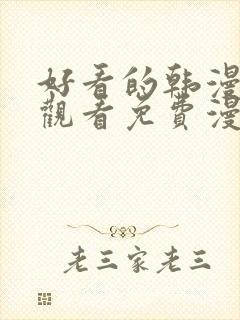 好看的韩漫
觀看免費漫
老三家老三